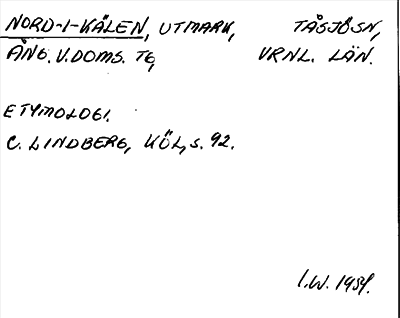 NORD-I-KÅLEN, UTMARK, TÅSJÖSN,
ÅNG. V. DOMS. TG, VRNL. LÄN.
ETYMOLOGI.
C. LINDBERG, KÖL, S. 92.
I.W. 1954.